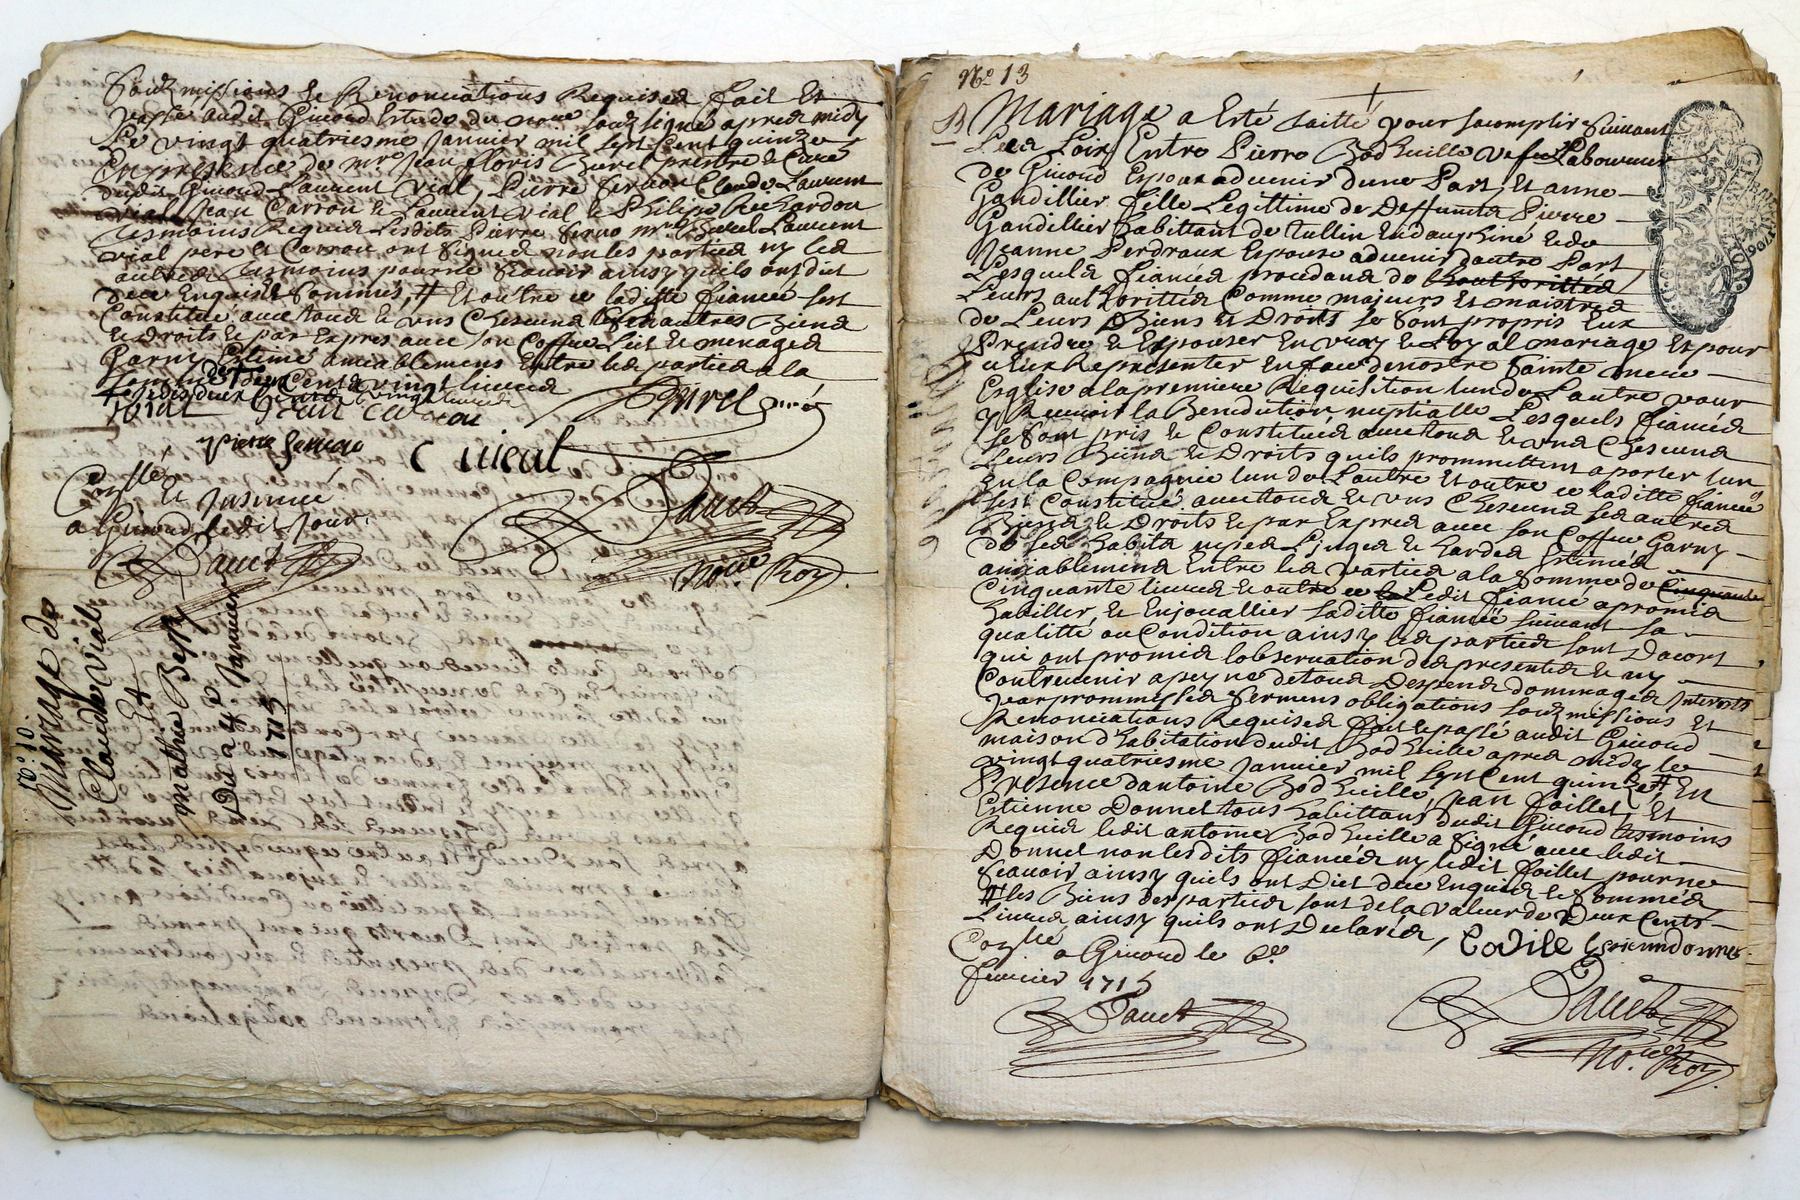 Soubzmissions & Renonciations Requises fait Et
passé audit Givord Estude du no.re soubsigné apres midy
Le vingt quatriesme Janvier mil sept cent quinze
En presence de m.re Jean floris Burel prestre & Curé
dudit Givord Laurent vial, Pierre Claude Laurent
vial Jean Carron & Laurent vial & Philipe Rechardon
tesmoins Requis Lesdits Pierre m.re Burel Laurent
vial pere Et Carron, ont signes non les parties ny les
autres tesmoins pour ne scavoir ainsy quils ont dit
dece Enquis Et Sommés, # Et outre ce laditte fiancée sest
Constituée avec tous & uns Chescuns ses autres Biens
& droits & par Expres avec son Coffre Lict & menages
Garny Estimé amiablement Entre les parties a la
somme de deux Cents vingt livres
vial Jean caron Burel curé
pierre
C vieal
Con.llé & Insinué
a Givord ledit Jour.
Dauct Dauct
No.re Roy.
N.o 10
Mariage de
Claude Vial
Et
mathie
Du 24.e Janvier
1715
N.o 13
Mariage a Esté traitté pour sacomplir suivant
Les Loix Entre Pierre Bodhuille vefve Laboureur
de Givord Espoux advenir dune Part, Et anne
Gandillier fille Legittime de Deffuncts Pierre
Gandillier habittant de tullin En dauphiné & de
Jeanne Perdraux Espouse advenir dautre Part
Lesquels fiances procedans de lhauthorittes
Leurs authorittes Comme majeurs Et maistres
de Leurs Biens & Droits se sont promis Eux
Prendre & Espouser En vray & Loyal mariage Et pour
icelux Representer En face de nostre Sainte mere
Eglise a la premiere Requisition lun de Lautre pour
y Recevoir la Benediction nuptialle Lesquels fiancés
se sont pris & Constitués avec tous & uns Chescuns
Leurs Biens & Droits quils promettent aporter En
En la Compagnie lun de Lautre Et outre ce laditte fiancée
sest Constituée avec tous & uns Chescuns ses autres
Biens & Droits & par Expres avec son Coffre Garny
de ses habits nipes Linges & hardes Estimés
amiablement Entre les parties a la somme de Cinquante
Cinquante livres & outre ce Ledit fiancé a promis
habiller, & Enjouallier laditte fiancée suivant sa
qualitté ou Condition ainsy les parties sont Dacort
qui ont promis lobservation des presentes & ny
Contrevenir a peyne de tous Despens dommages Interests
par promesses sermens obligations soubzmissions Et
Renonciations Requises fait & passé audit Givord
maison d'habitation dudit Bodhuille apres midy le
vingt quatriesme Janvier mil sept Cent quinze # En
Presence dantoine Bodhuille, Jean faillet, Et
Estienne Donnet tous habittans dudit Givord tesmoins
Requis ledit antoine Bodhuille a signé avec ledit
Donnet non lesdits fiancés ny ledit faillet pour ne
scavoir ainsy quils ont Dict dece Enquis & Sommés
# les Biens des parties sont de la valeur de Deux Cents
Livres ainsy quils ont Declarés,
Con.llé
a Givord le 6.e
fevrier 1715
Dauct Dauct
No.re Roy.